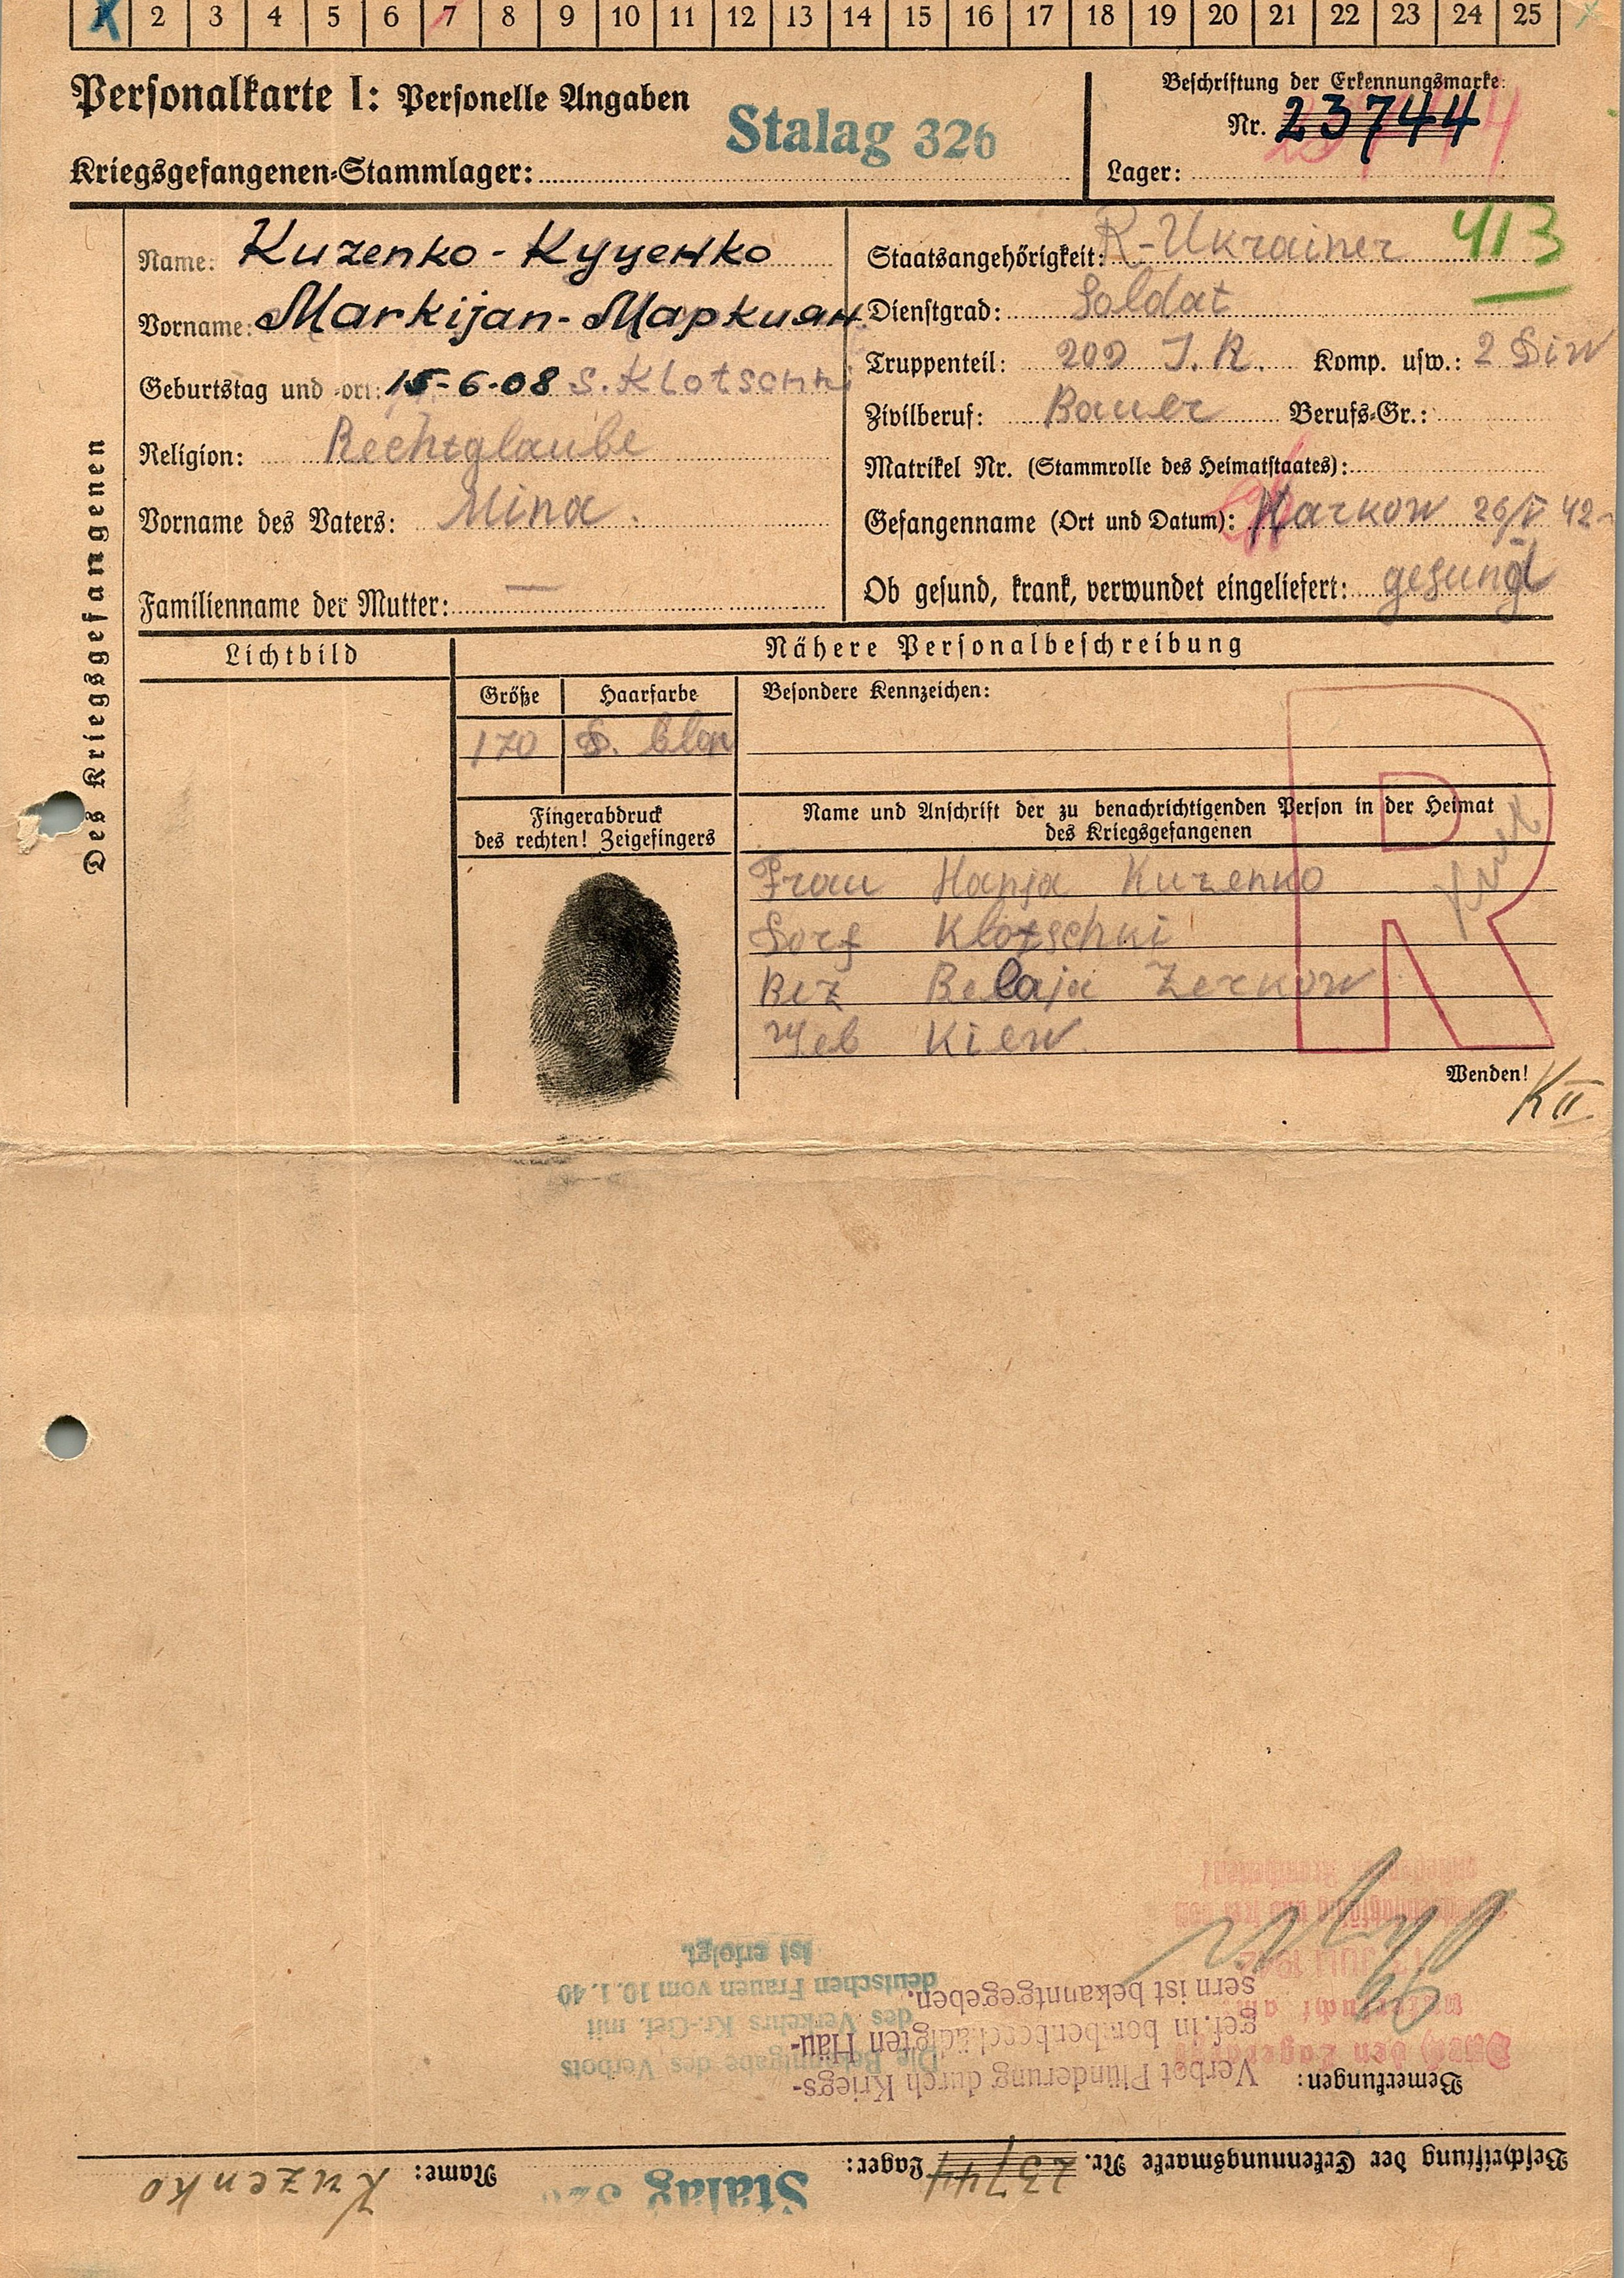 1 2 3 4 5 6 7 8 9 10 11 12 13 14 15 16 17 18 19 20 21 22 23 24 25
Personalkarte I: Personelle Angaben
Stalag 326
Kriegsgefangenen-Stammlager:
Beschriftung der Erkennungsmarke:
Nr. 23744
Lager:
Des Kriegsgefangenen
Name: Kuzenko - Куценко
Vorname: Markijan - Маркиян
Geburtstag und -ort: 15-6-08 S. Klotschki
Religion: Rechtglaube
Vorname des Vaters: Mina.
Familienname der Mutter: —
Staatsangehörigkeit: R-Ukrainer 413
Dienstgrad: Soldat
Truppenteil: 209 I.R. Komp. usw.: 2 Diw
Zivilberuf: Bauer Berufs-Gr.:
Matrikel Nr. (Stammrolle des Heimatstaates):
Gefangenname (Ort und Datum): Harkow 26/V 42
Ob gesund, krank, verwundet eingeliefert: gesund
Lichtbild
Nähere Personalbeschreibung
Größe Haarfarbe
170 D. blon
Besondere Kennzeichen:
Fingerabdruck
des rechten! Zeigefingers
Name und Anschrift der zu benachrichtigenden Person in der Heimat
des Kriegsgefangenen
R
Frau Hanja Kuzenko
Dorf Klotschki
Bez Belaja Zerkow
Geb Kiew
Wenden!
K II.
Beschriftung der Erkennungsmarke Nr. 23744 Lager: Stalag 326 Name: Kuzenko
Bemerkungen:
Verbot Plünderung durch Kriegs-
gef. in bombenbeschädigten Häu-
sern ist bekanntgegeben.
Die Bekanntgabe des Verbots
des Verkehrs Kr.-Gef. mit
deutschen Frauen vom 10.1.40
ist erfolgt.
JULI 1942